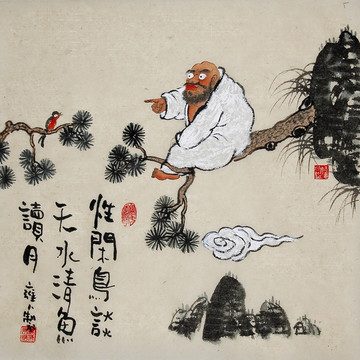 性閑鳥談
天水清魚
讀月